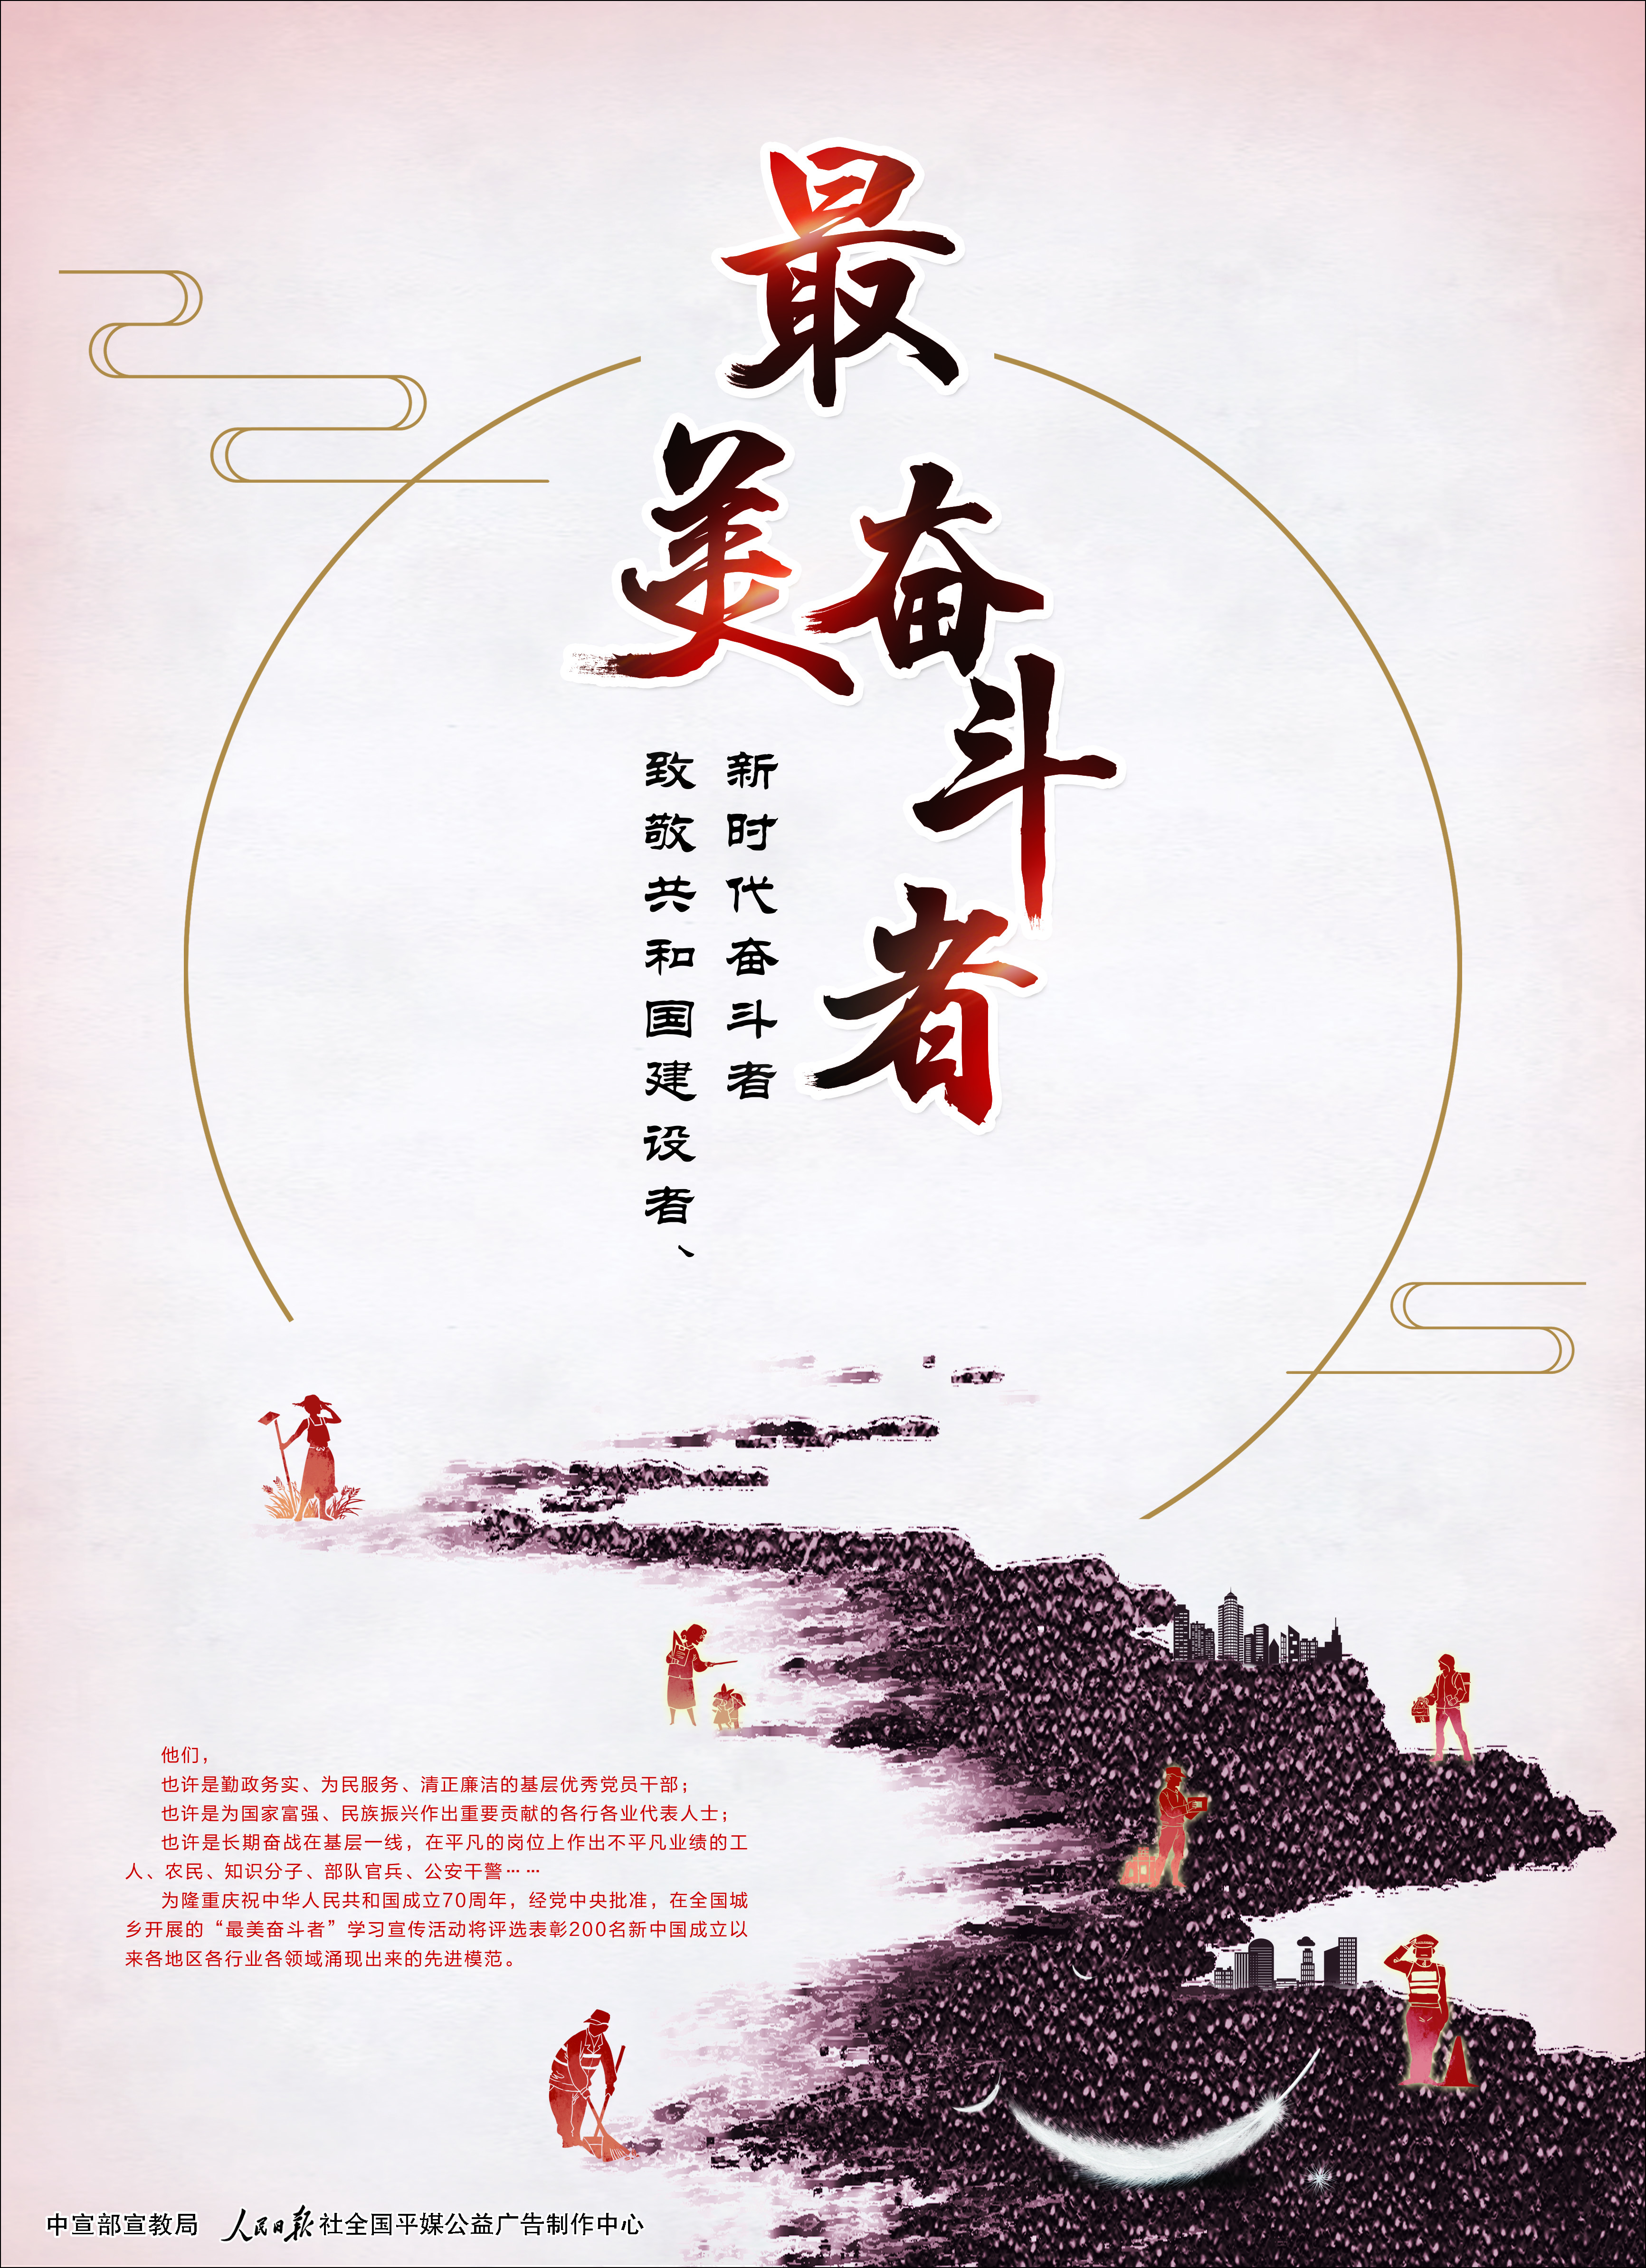 最
美
奋
斗
者
致敬共和国建设者、
新时代奋斗者
他们，
也许是勤政务实、为民服务、清正廉洁的基层优秀党员干部；
也许是为国家富强、民族振兴作出重要贡献的各行各业代表人士；
也许是长期奋战在基层一线，在平凡的岗位上作出不平凡业绩的工
人、农民、知识分子、部队官兵、公安干警……
为隆重庆祝中华人民共和国成立70周年，经党中央批准，在全国城
乡开展的“最美奋斗者”学习宣传活动将评选表彰200名新中国成立以
来各地区各行业各领域涌现出来的先进模范。
中宣部宣教局 人民日报社全国平媒公益广告制作中心